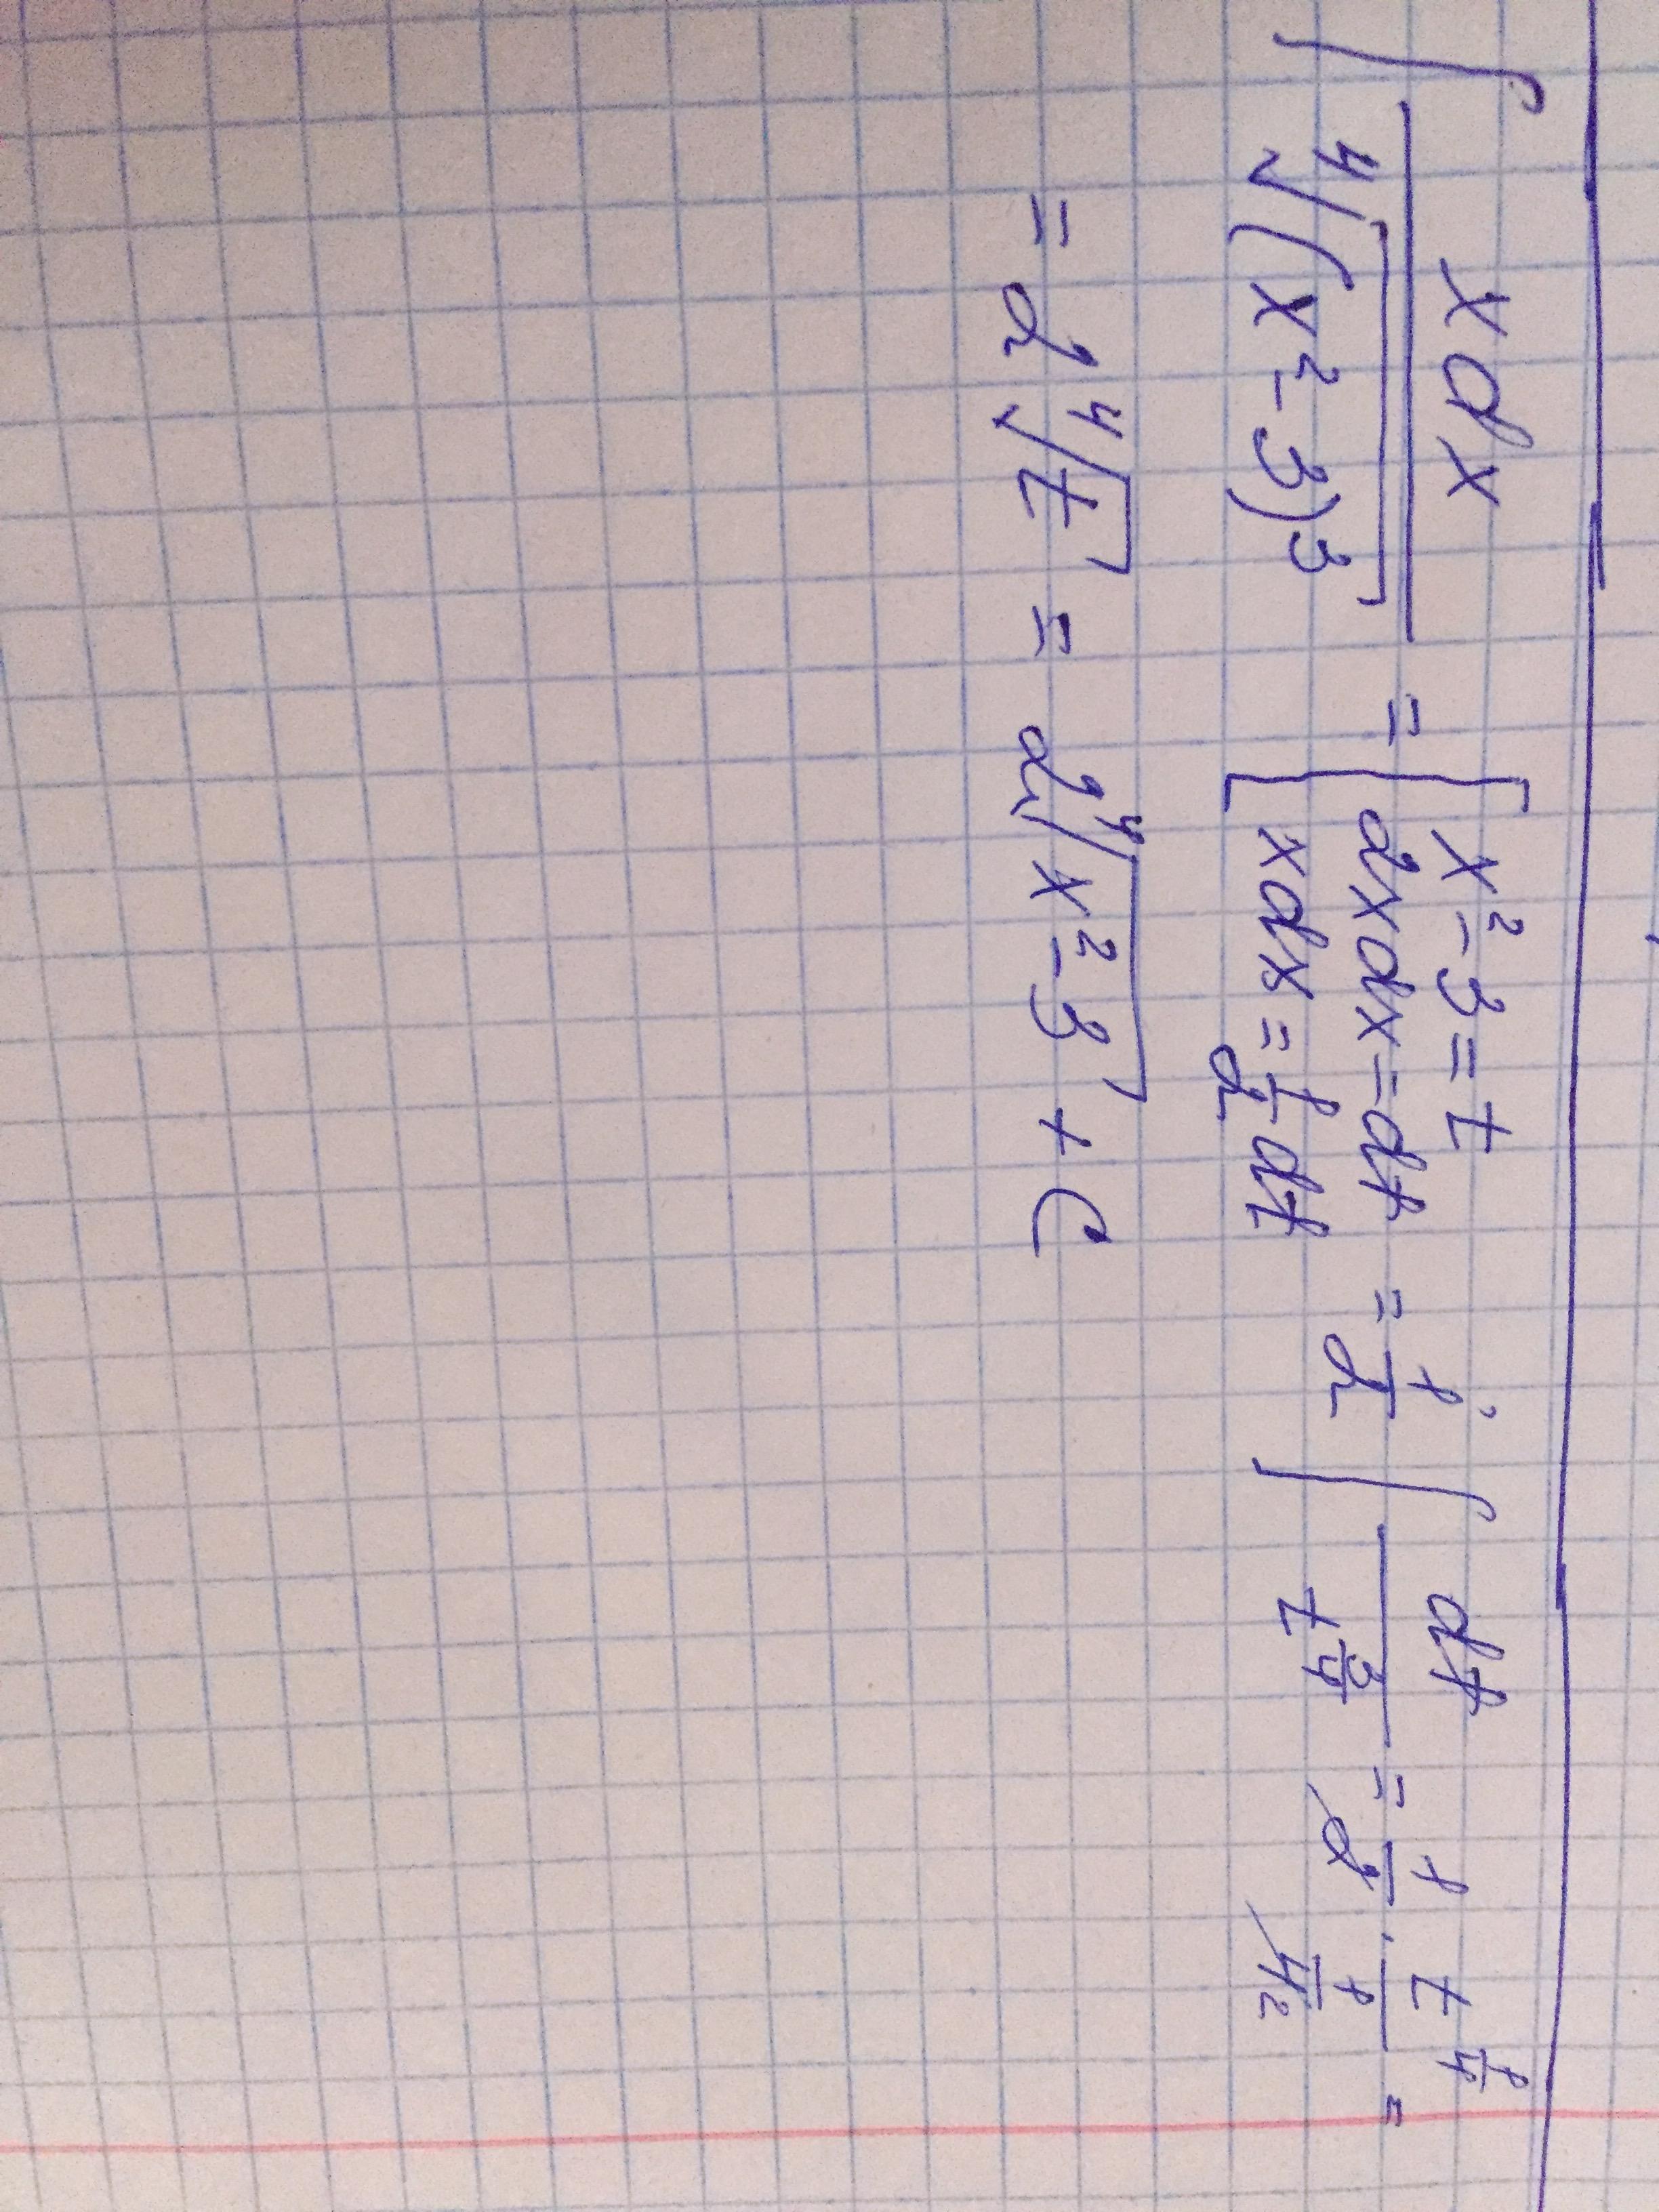 ∫ xdx / ⁴√(x²-3)³ = [ x²-3=t 2xdx=dt xdx=1/2 dt = 1/2 ∫ dt / t^(3/4) = 1/2 · t^(1/4) / (1/4) 2 =
= 2 ⁴√t = 2 ⁴√x²-3 + C